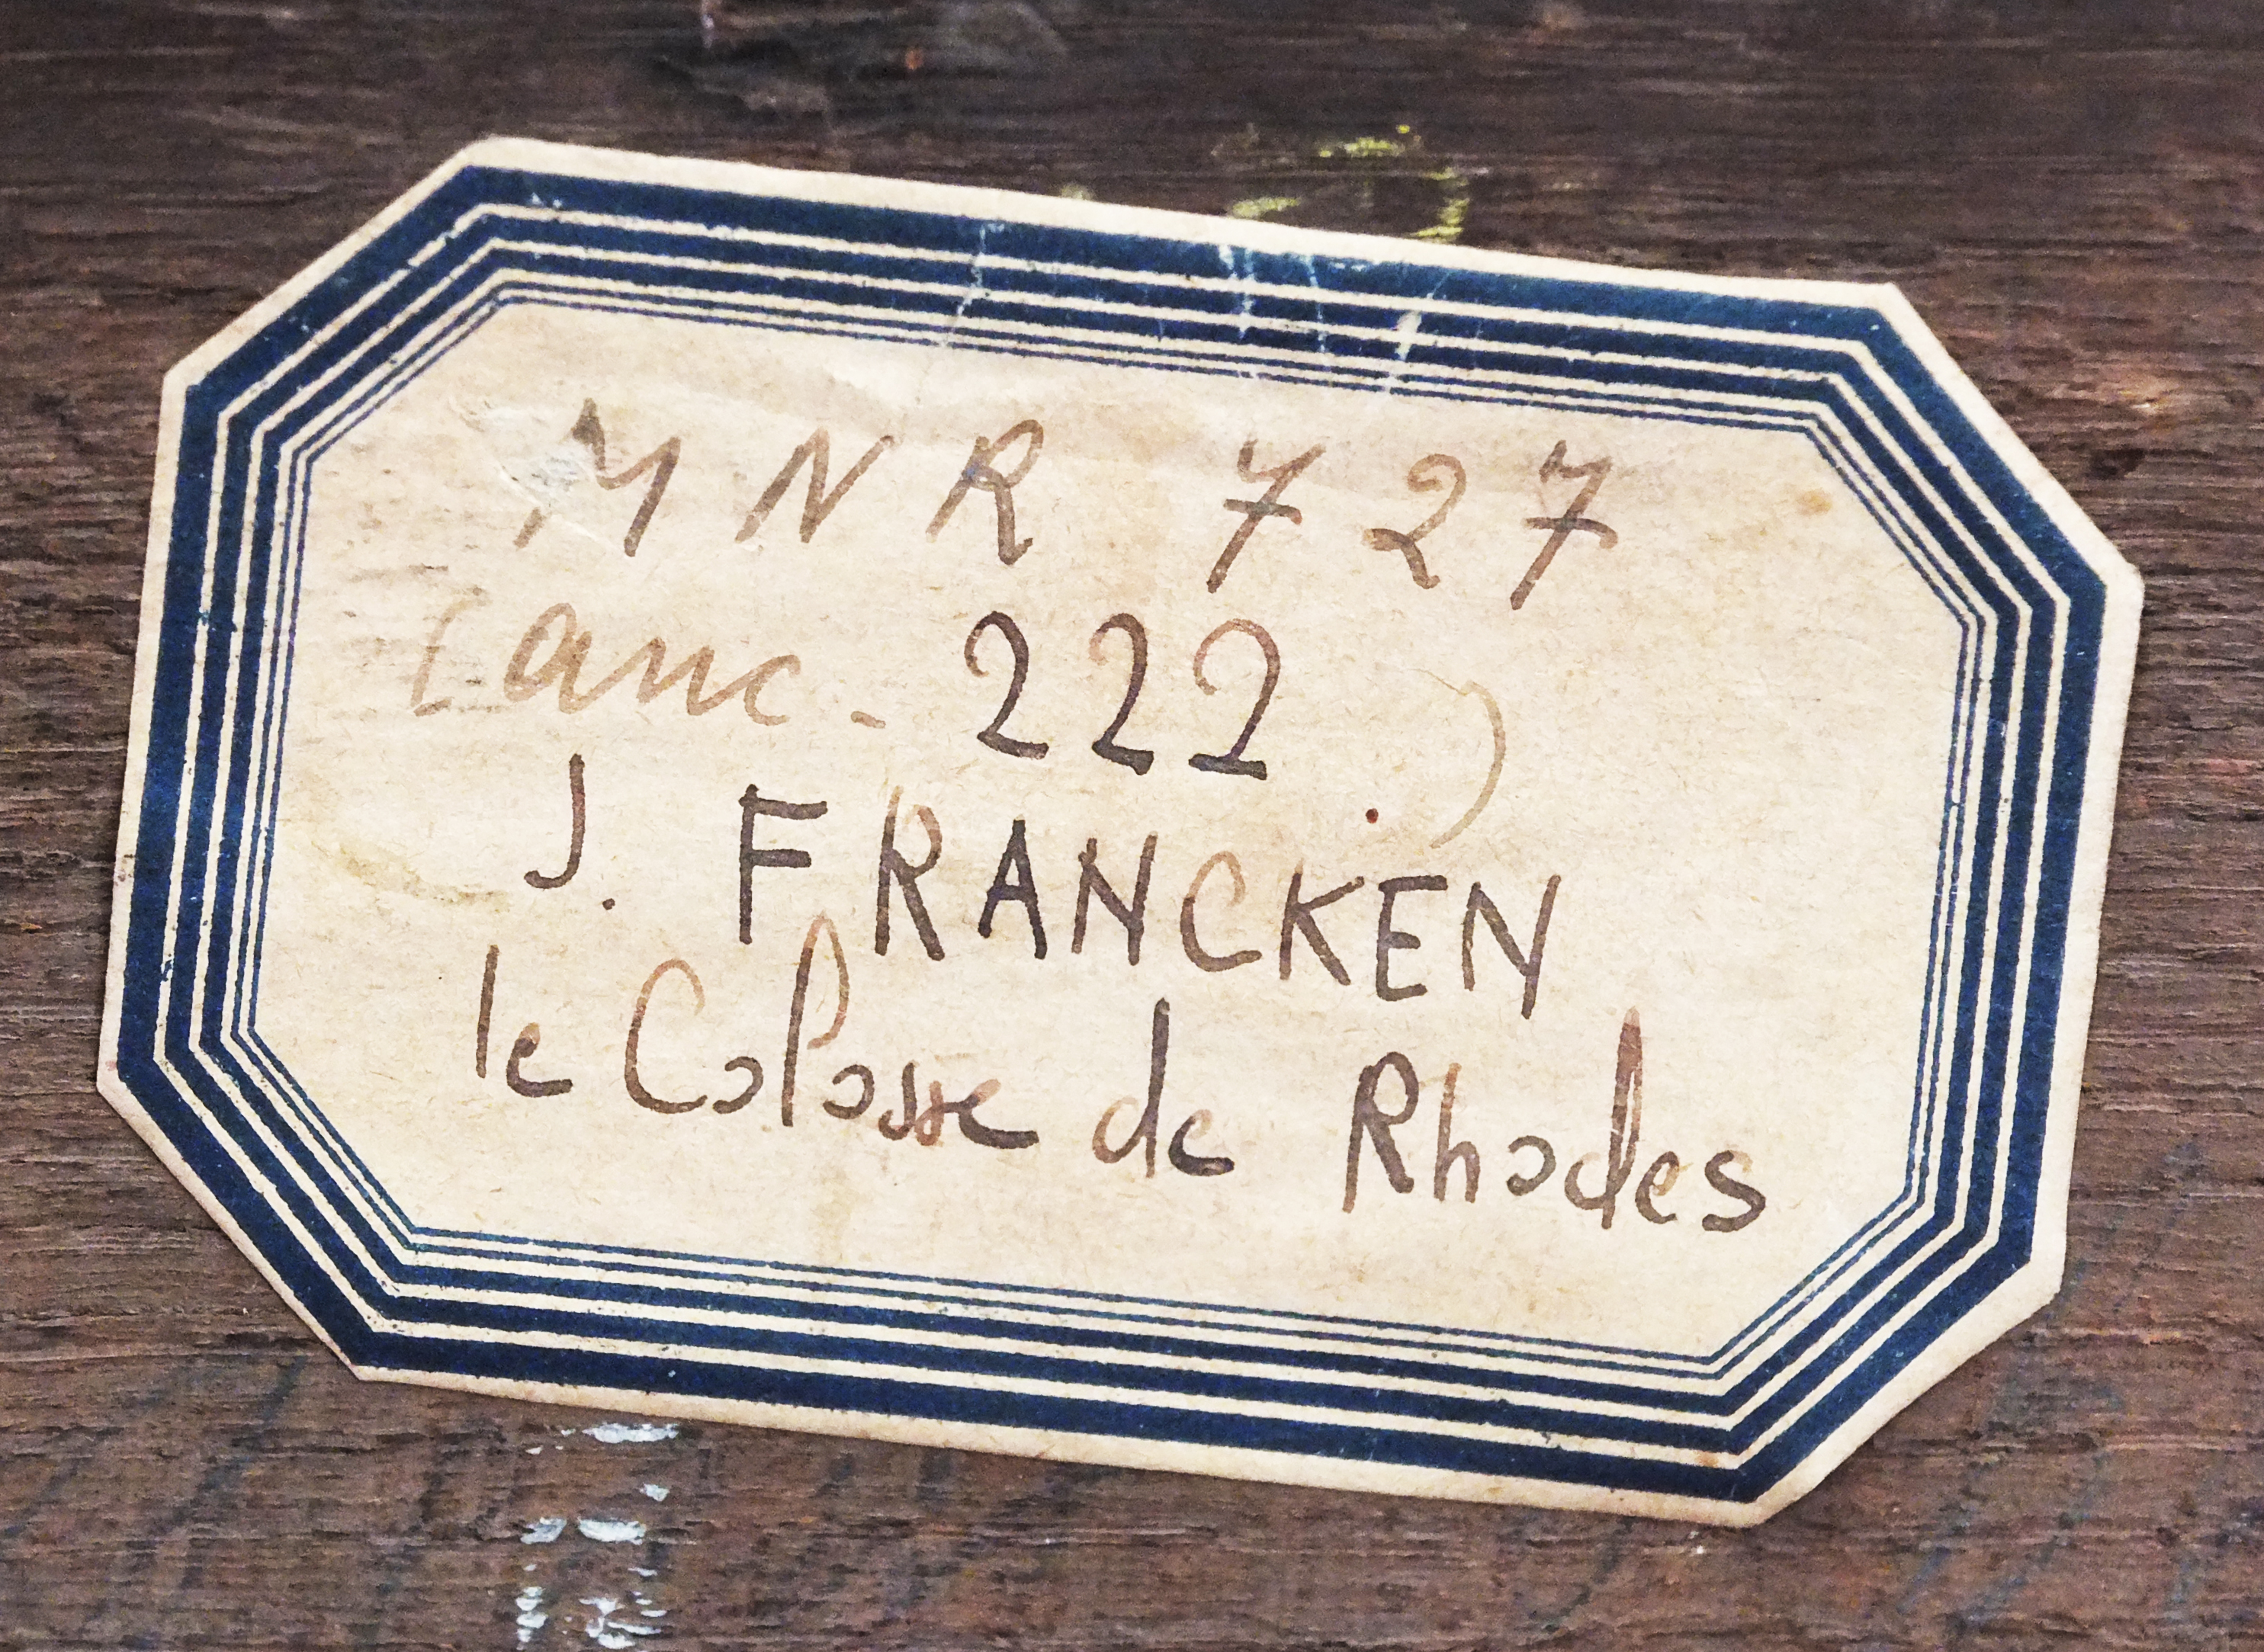 MNR 727
(anc. 222)
J. FRANCKEN
le Colosse de Rhodes